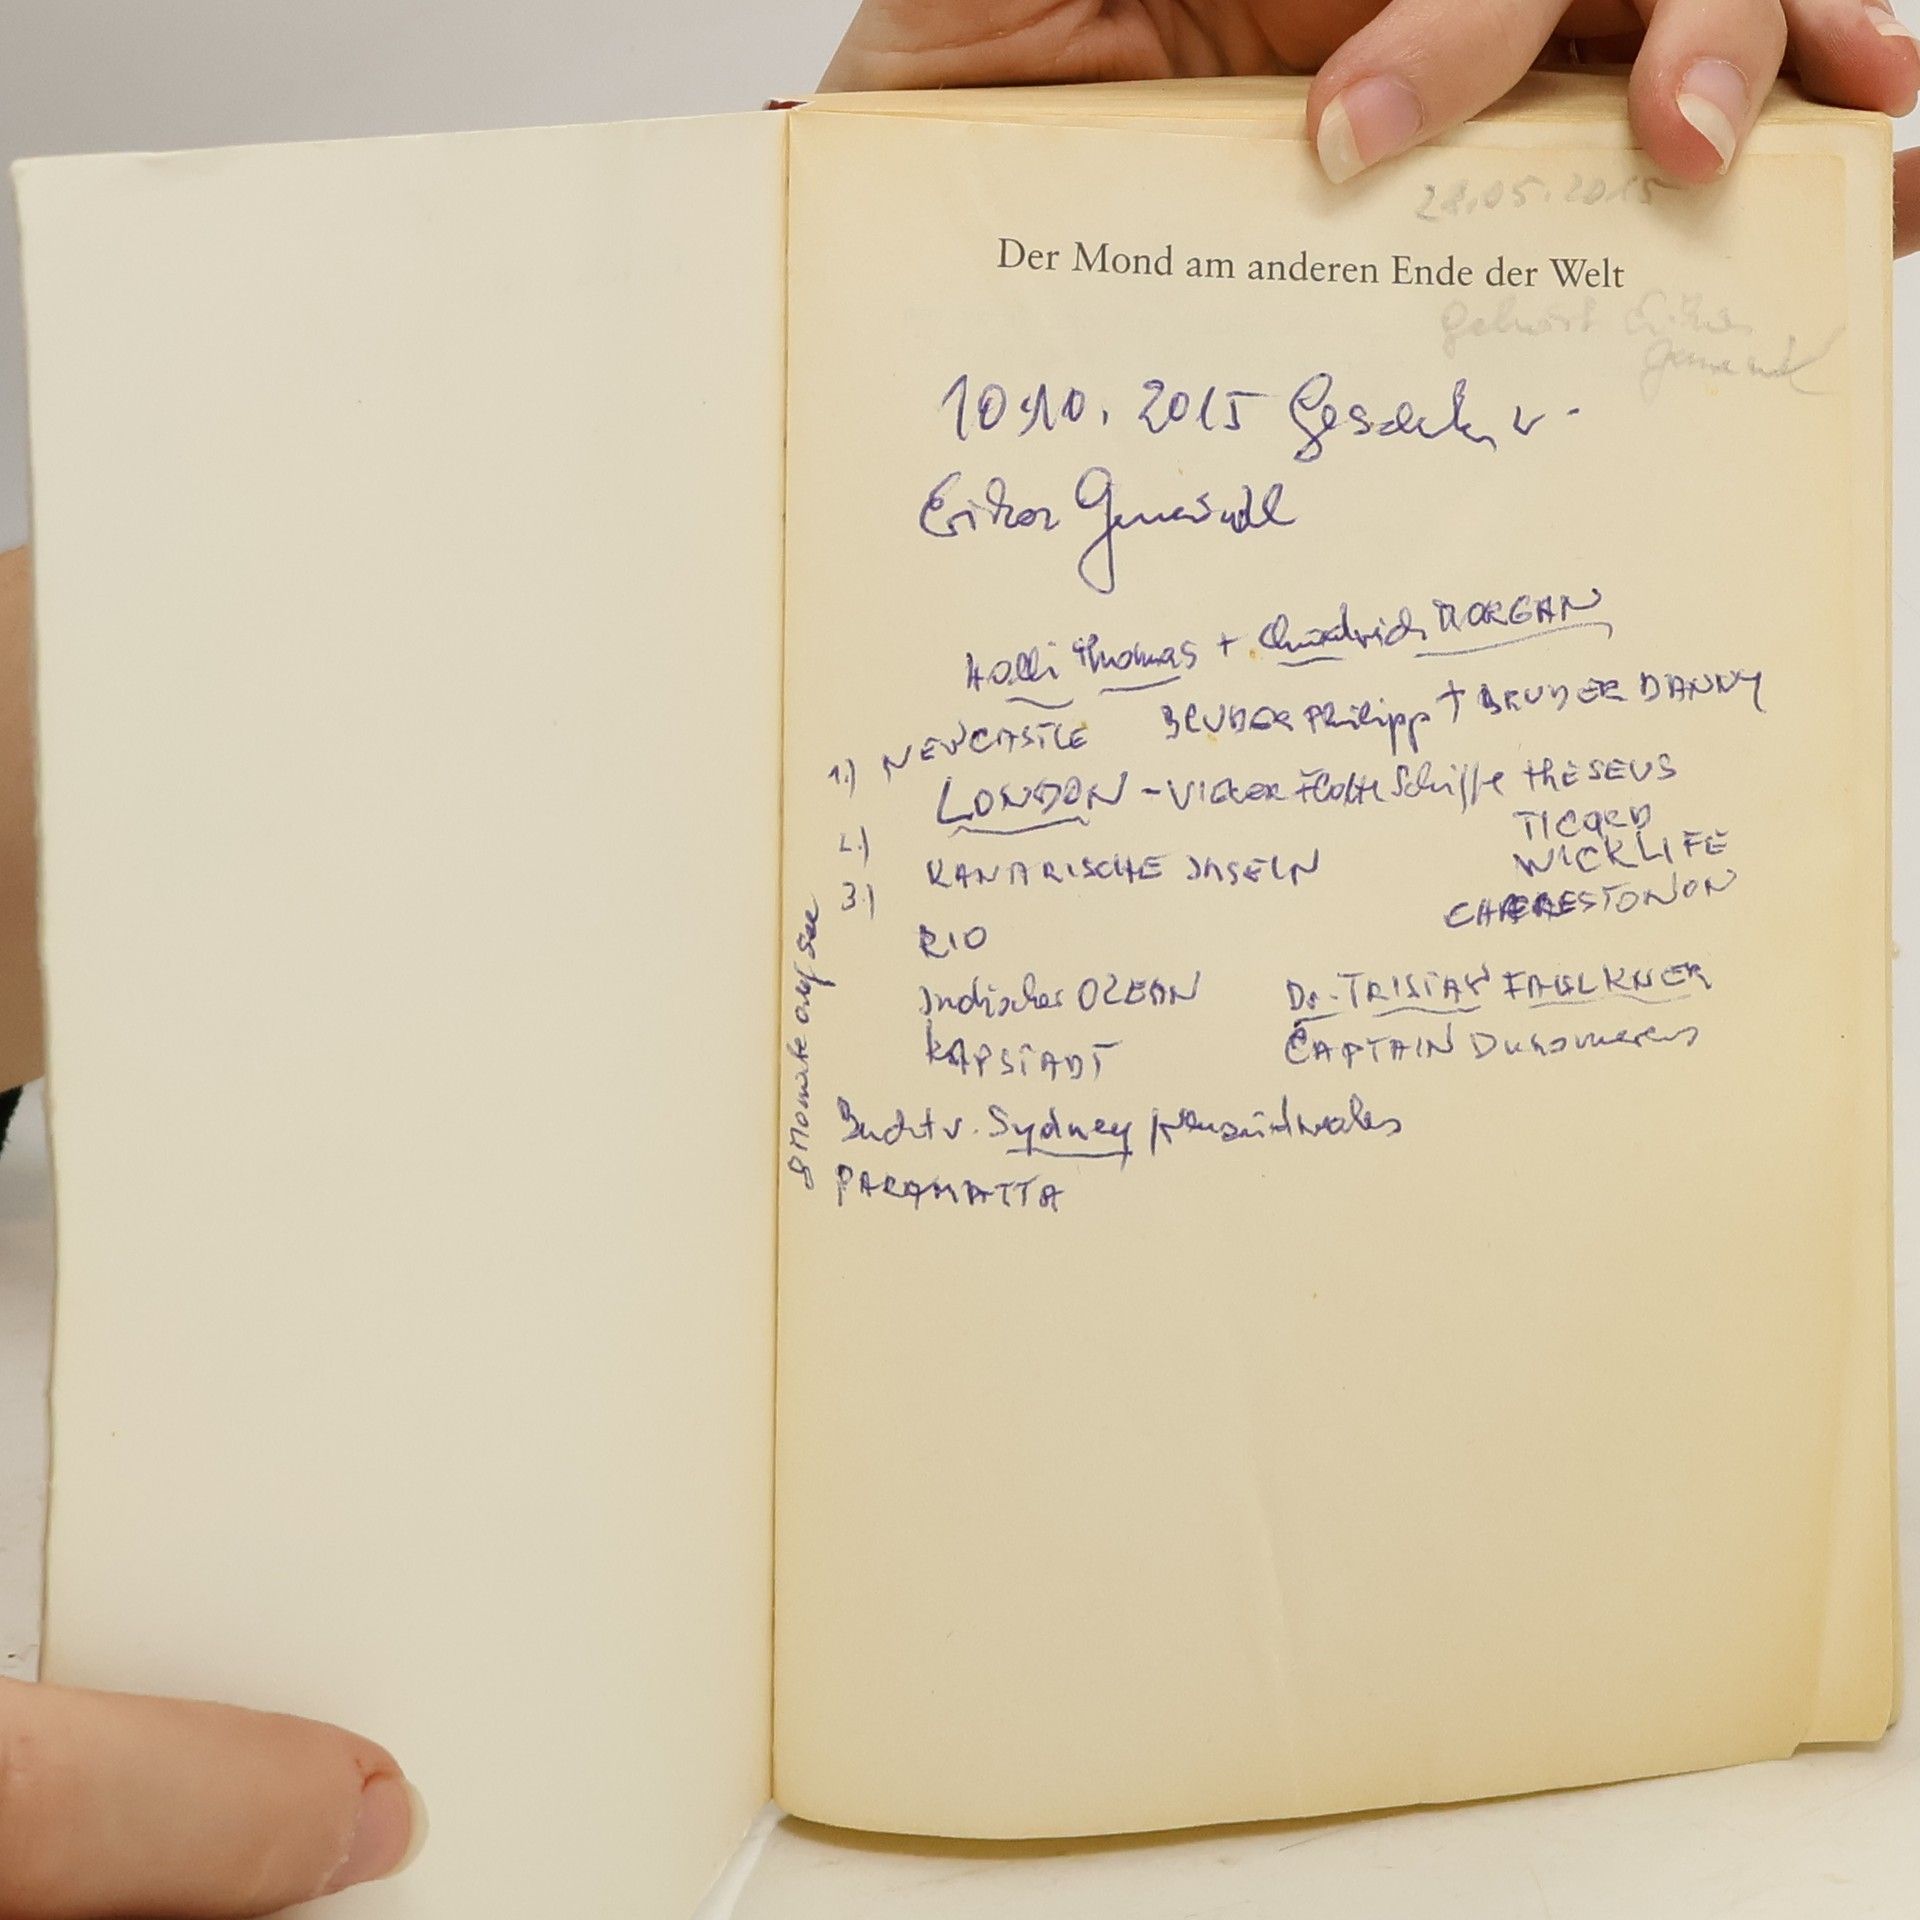 28.05.2015
Der Mond am anderen Ende der Welt
gehört Erika
10.10.2015 Geschenk v.
Erika
Holli Thomas + MORGAN
1.) NEWCASTLE BRUDER Philipp + BRUDER DANNY
2.) LONDON - Schiffe THESEUS
TIGRED
WICKLIFE
3.) KANARISCHE INSELN
RIO
Indischer OZEAN Dr. TRISTAN FAULKNER
KAPSTADT CAPTAIN
Bucht v. Sydney Neusüdwales
PARAMATTA
8 Monate auf See